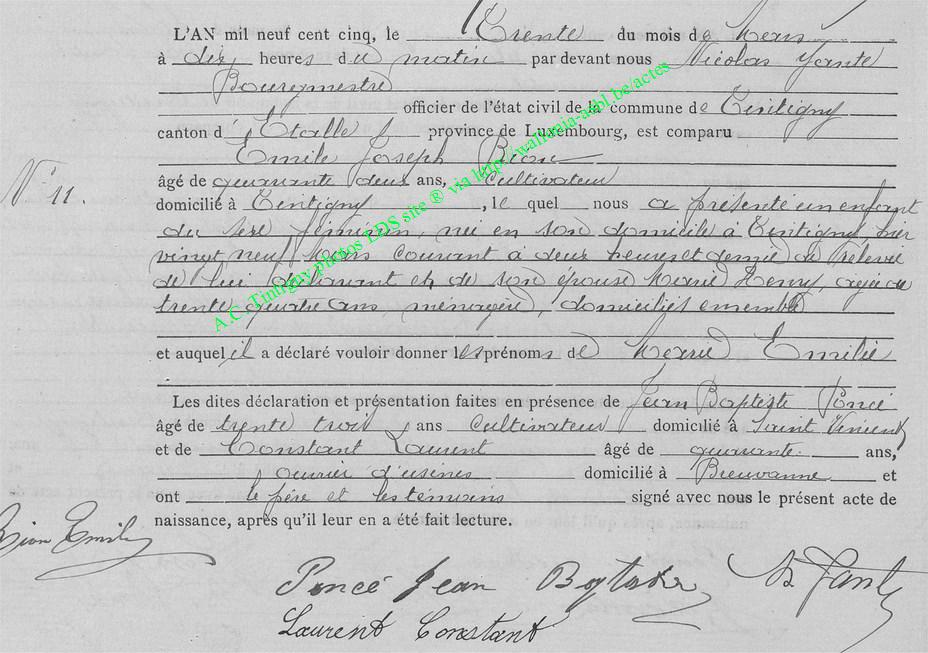 L'AN mil neuf cent cinq, le Trente du mois de Mars
à dix heures du matin par devant nous Nicolas Yante
Bourgmestre
officier de l'état civil de la commune de Tintigny
canton d'Etalle province de Luxembourg, est comparu
Emile Joseph Bion
âgé de quarante deux ans, Cultivateur
domicilié à Tintigny, le quel nous a présenté un enfant
du sexe féminin, née en son domicile à Tintigny, hier
vingt neuf Mars courant à deux heures et demie de relevée
de lui déclarant et de son épouse Marie Henry, agée de
trente quatre ans, ménagère, domiciliés ensemble
N° 11.
et auquel il a déclaré vouloir donner les prénoms de Marie Emilie
Les dites déclaration et présentation faites en présence de Jean Baptiste Poncé
âgé de trente trois ans Cultivateur domicilié à Saint Vincent
et de Constant Laurent âgé de quarante ans,
ouvrier d'usines domicilié à Breuvanne et
ont le père et les témoins signé avec nous le présent acte de
naissance, après qu'il leur en a été fait lecture.
Bion Emile
Poncé Jean Baptiste N Yante
Laurent Constant
A.C. Tintigny photos EDS site ® via http://wallonia-asbl.be/actes